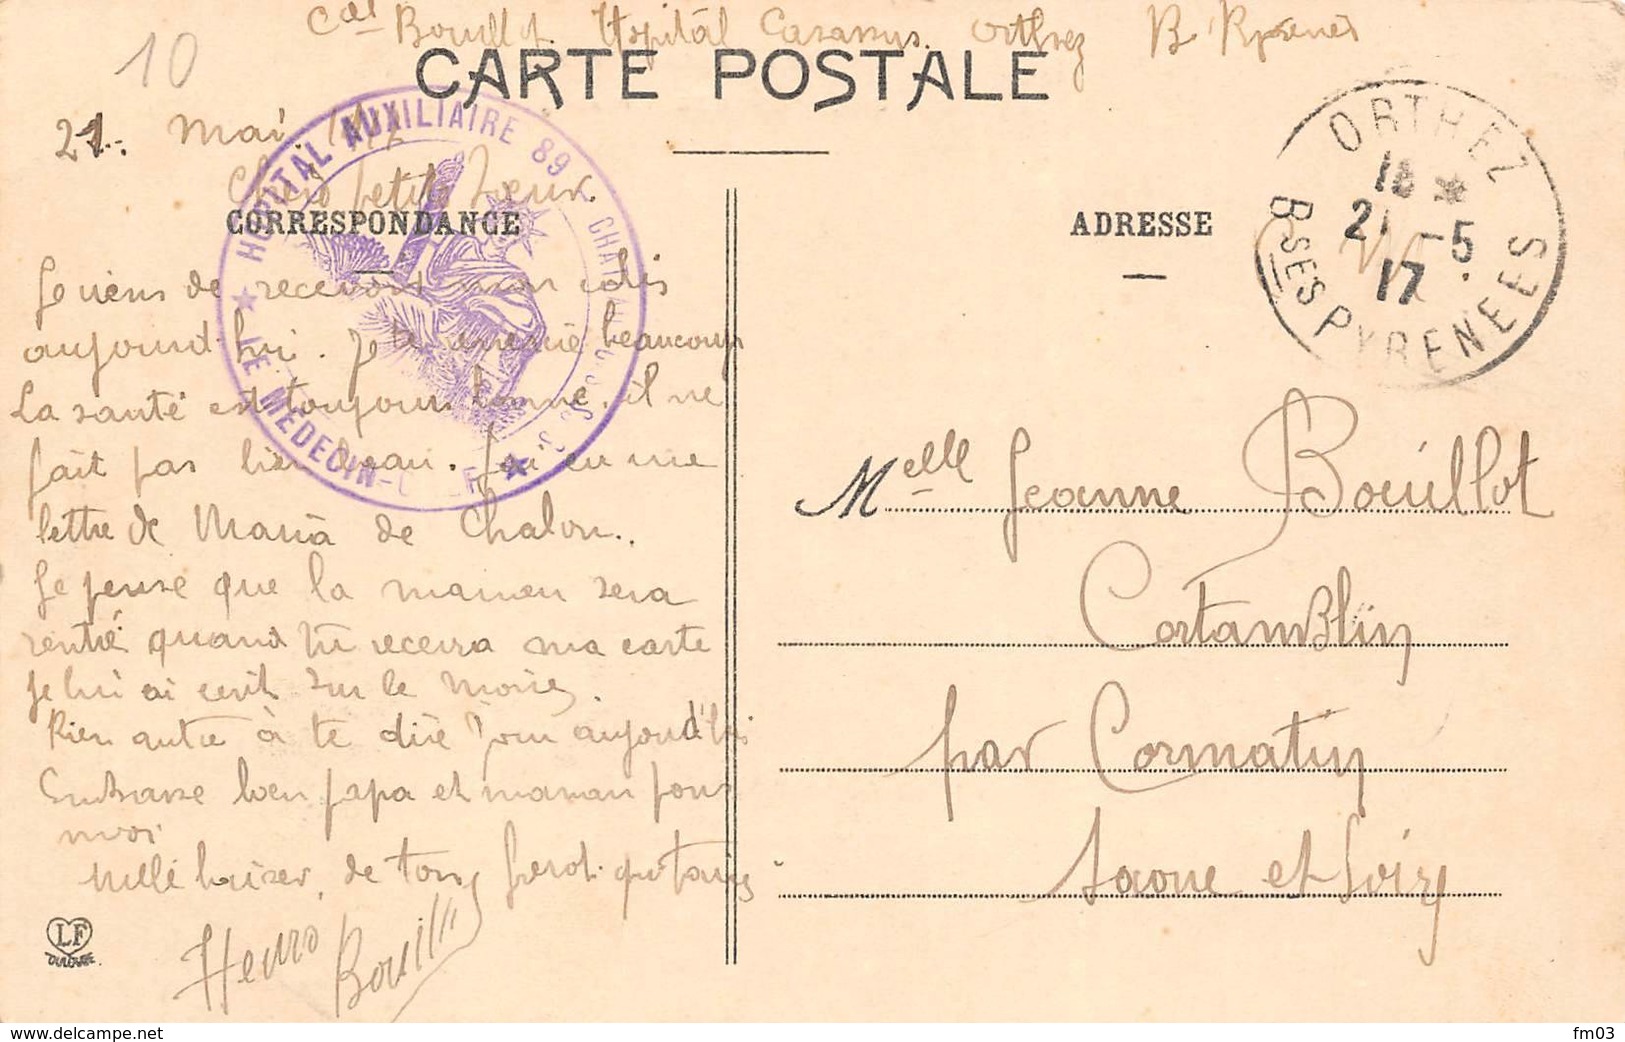 Cal Bouillot Hôpital Casassus Orthez B Pyrénés
10
CARTE POSTALE
21. Mai 1917
Chère petite soeur
CORRESPONDANCE
Je viens de recevoir mon colis
aujourd hui. Je te remercie beaucoup
La santé est toujours bonne. il ne
fait pas bien beau. J'ai eu une
lettre de Maria de Chalon..
Je pense que la maman sera
rentré quand tu recevra ma carte
je lui ai ecrit sur le
Rien autre à te dire pour aujourd'hui
Embrasse bien papa et maman pour
moi
Mille baiser, de ton frerot qui t'aime
Henri Bouillot
HOPITAL AUXILIAIRE 89
LE MEDECIN-CHEF
ADRESSE
ORTHEZ
18 *
21 -5
17
BSES PYRENEES
Melle Jeanne Bouillot
Cortamblin
par Cormatin
Saone et Loire
LF
TOULOUSE
www.delcampe.net
fm03